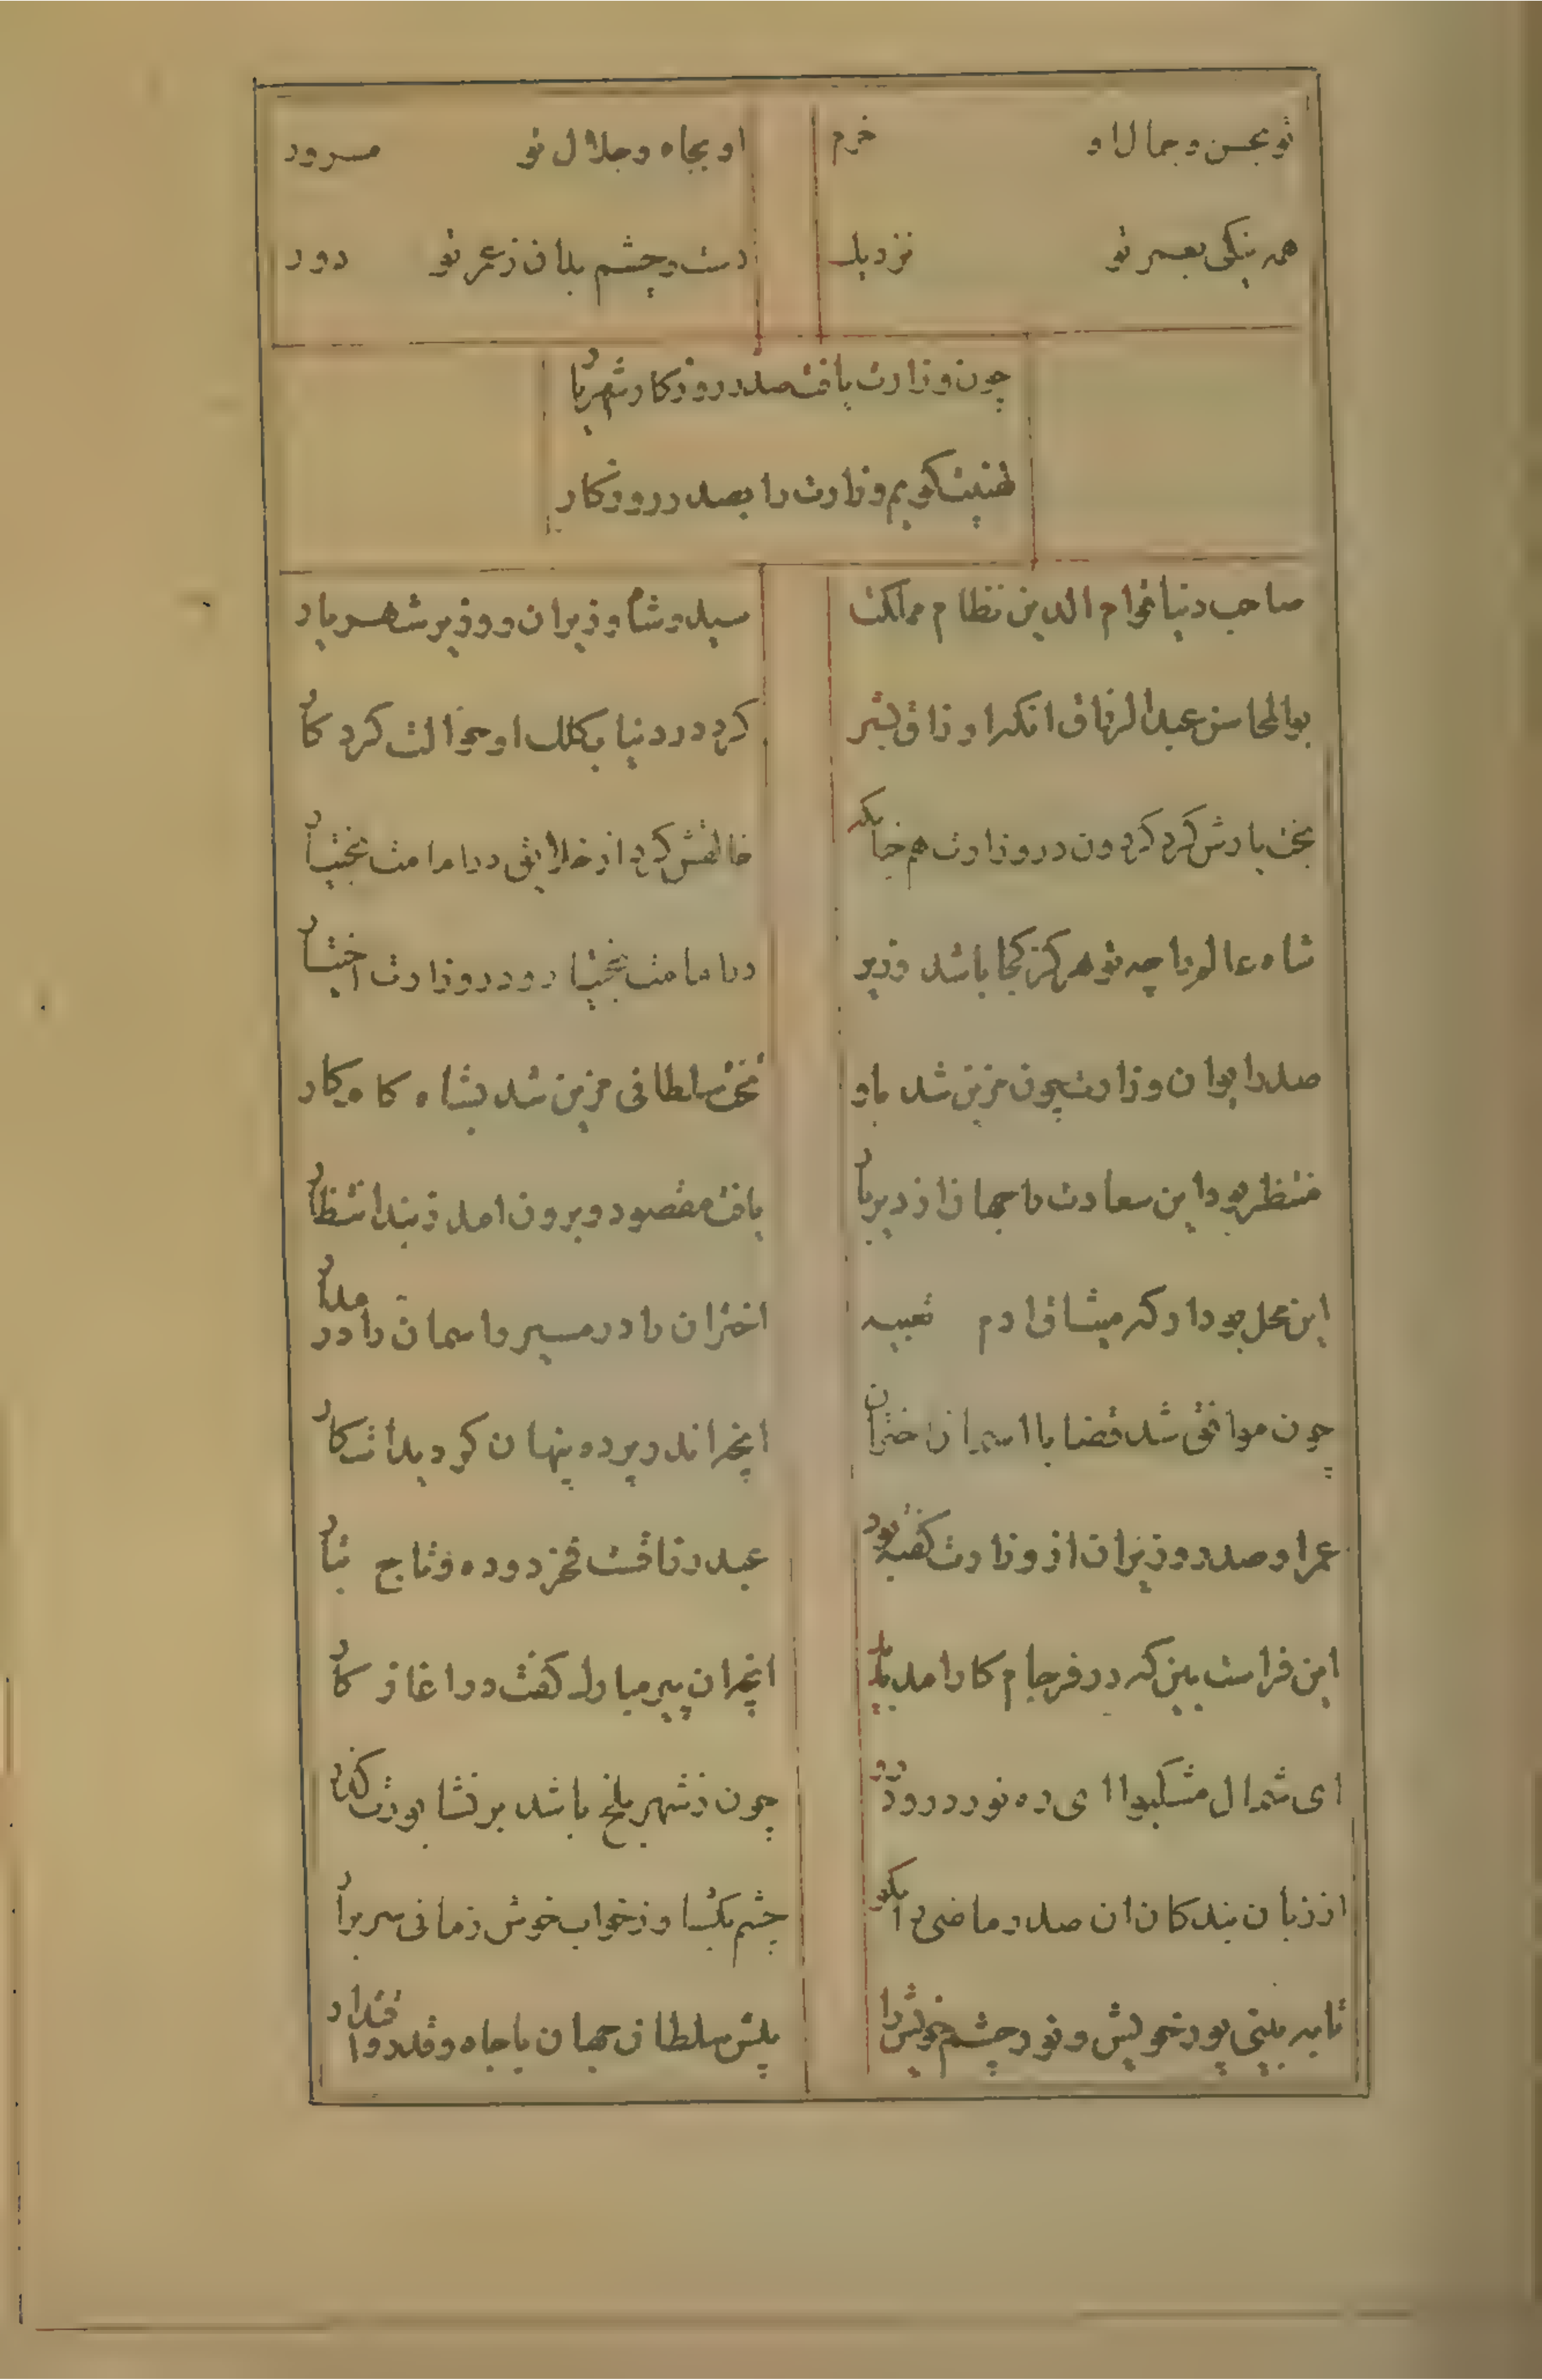 تو بحسن و جمال او خرم او بجاه و جلال تو مسرور
همه نیکی بعمر تو نزدیک دست و چشم بدان ز عمر تو دور
چون وزارت یافت صدر روزکار شهریار
تهنیت کویم وزارت را بصدر روزکار
صاحب دنیا قوام الدین نظام مملکت سید و شاه وزیران و وزیر شهریار
بوالمحاسن عبدالرزاق انکه ارزاق بشر کرد در دنیا بکلک او حوالت کردکار
بخت یارش کرد کردون در وزارت هم چنانکه خالقش کرد از خلایق در امامت بختیار
شاه عالم را چه تو هرکز کجا باشد وزیر در امامت بختیار و در وزارت اختیار
صدر ایوان وزارت چون مزین شد باو تخت سلطانی مزین شد بشاه کامکار
منتظر بود این سعادت را جهان از دیر باز یافت مقصود و برون امد ز بند انتظار
این محل بود او که میثاق ادم تعبیه اختران را در مسیر و اسمان را در مدار
چون موافق شد قضا با اسمان اختران انچه اندر پرده پنهان کرد بد اشکار
عمر او صدر وزیران از وزارت کفته بود عبد رزاقست فخر دوده و تاج تبار
این فراست بین که در فرجام کار امد پدید انچه ان پیر مبارک گفت در اغاز کار
ای شمال مشکبو ای ره نورد زود رو چون ز شهر بلخ باشد بر نشابورت کذار
از زبان بندکان ان صدر ماضی را بکو چشم بکشا و ز خواب خوش زمانی سر برار
تا به بینی پور خویش و نور چشم خویش را پیش سلطان جهان با جاه و قدر و اقتدار